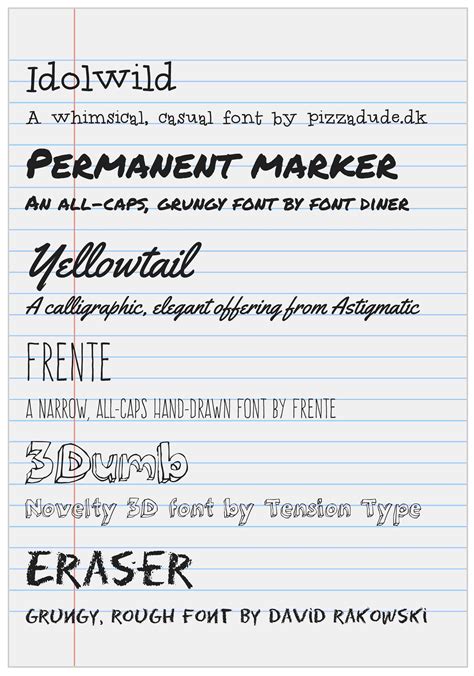 Idolwild
A whimsical, casual font by pizzadude.dk
PERMANENT MARKER
AN ALL-CAPS, GRUNGY FONT BY FONT DINER
Yellowtail
A calligraphic, elegant offering from Astigmatic
FRENTE
A NARROW, ALL-CAPS HAND-DRAWN FONT BY FRENTE
3Dumb
Novelty 3D font by Tension Type
ERASER
GRUNGY, ROUGH FONT BY DAVID RAKOWSKI